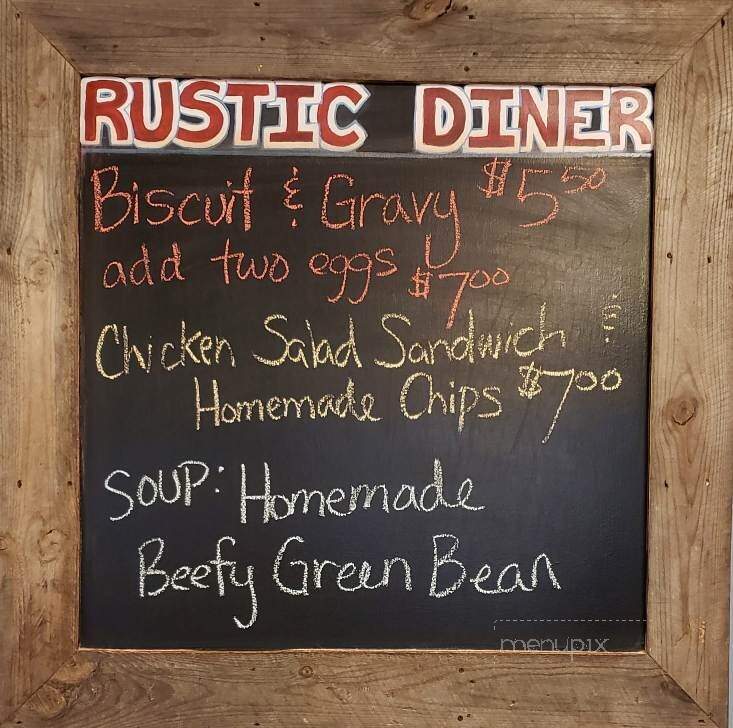 RUSTIC DINER
Biscuit & Gravy $5.50
add two eggs $7.00
Chicken Salad Sandwich &
Homemade Chips $7.00
SOUP: Homemade
Beefy Green Bean
menupix